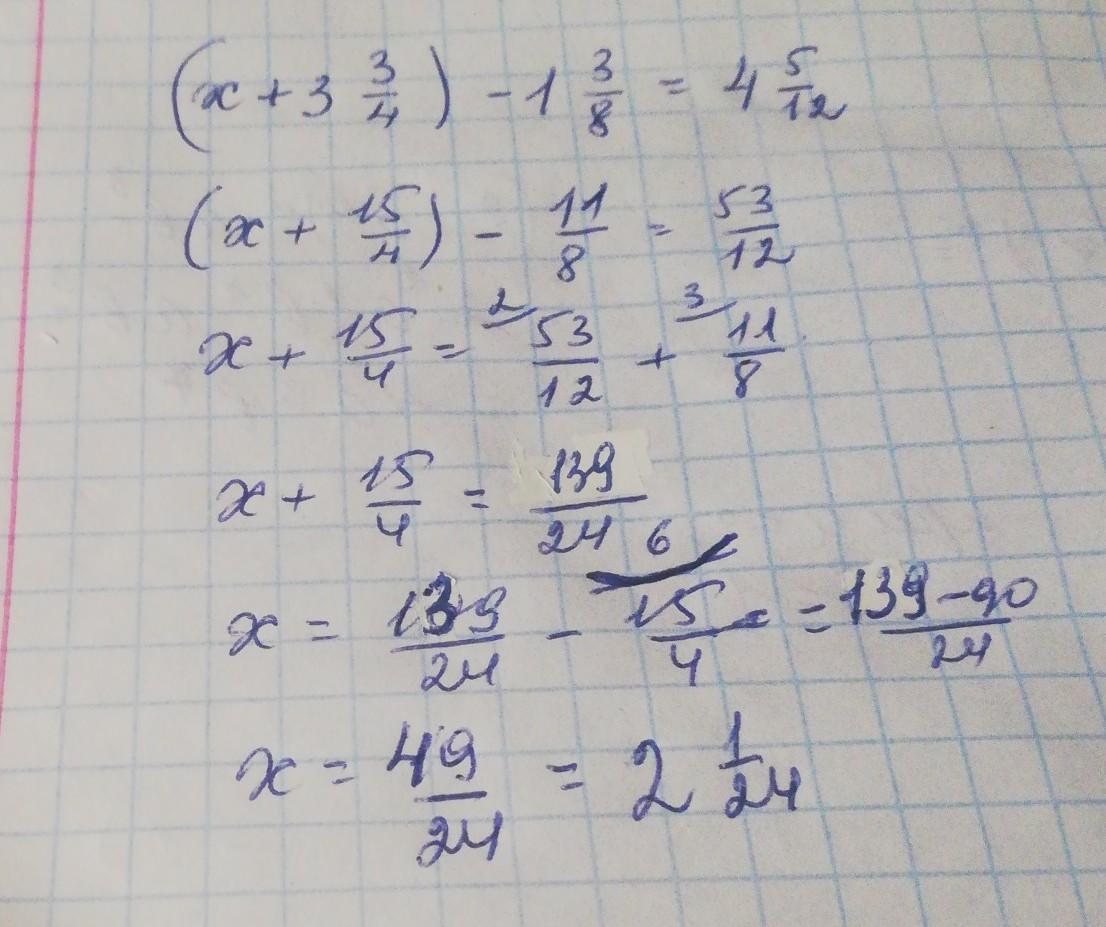 (x + 3 3/4) - 1 3/8 = 4 5/12
(x + 15/4) - 11/8 = 53/12
x + 15/4 = 2/ 53/12 + 3/ 11/8
x + 15/4 = 139/24
x = 139/24 - 6/ 15/4 = 139-90/24
x = 49/24 = 2 1/24